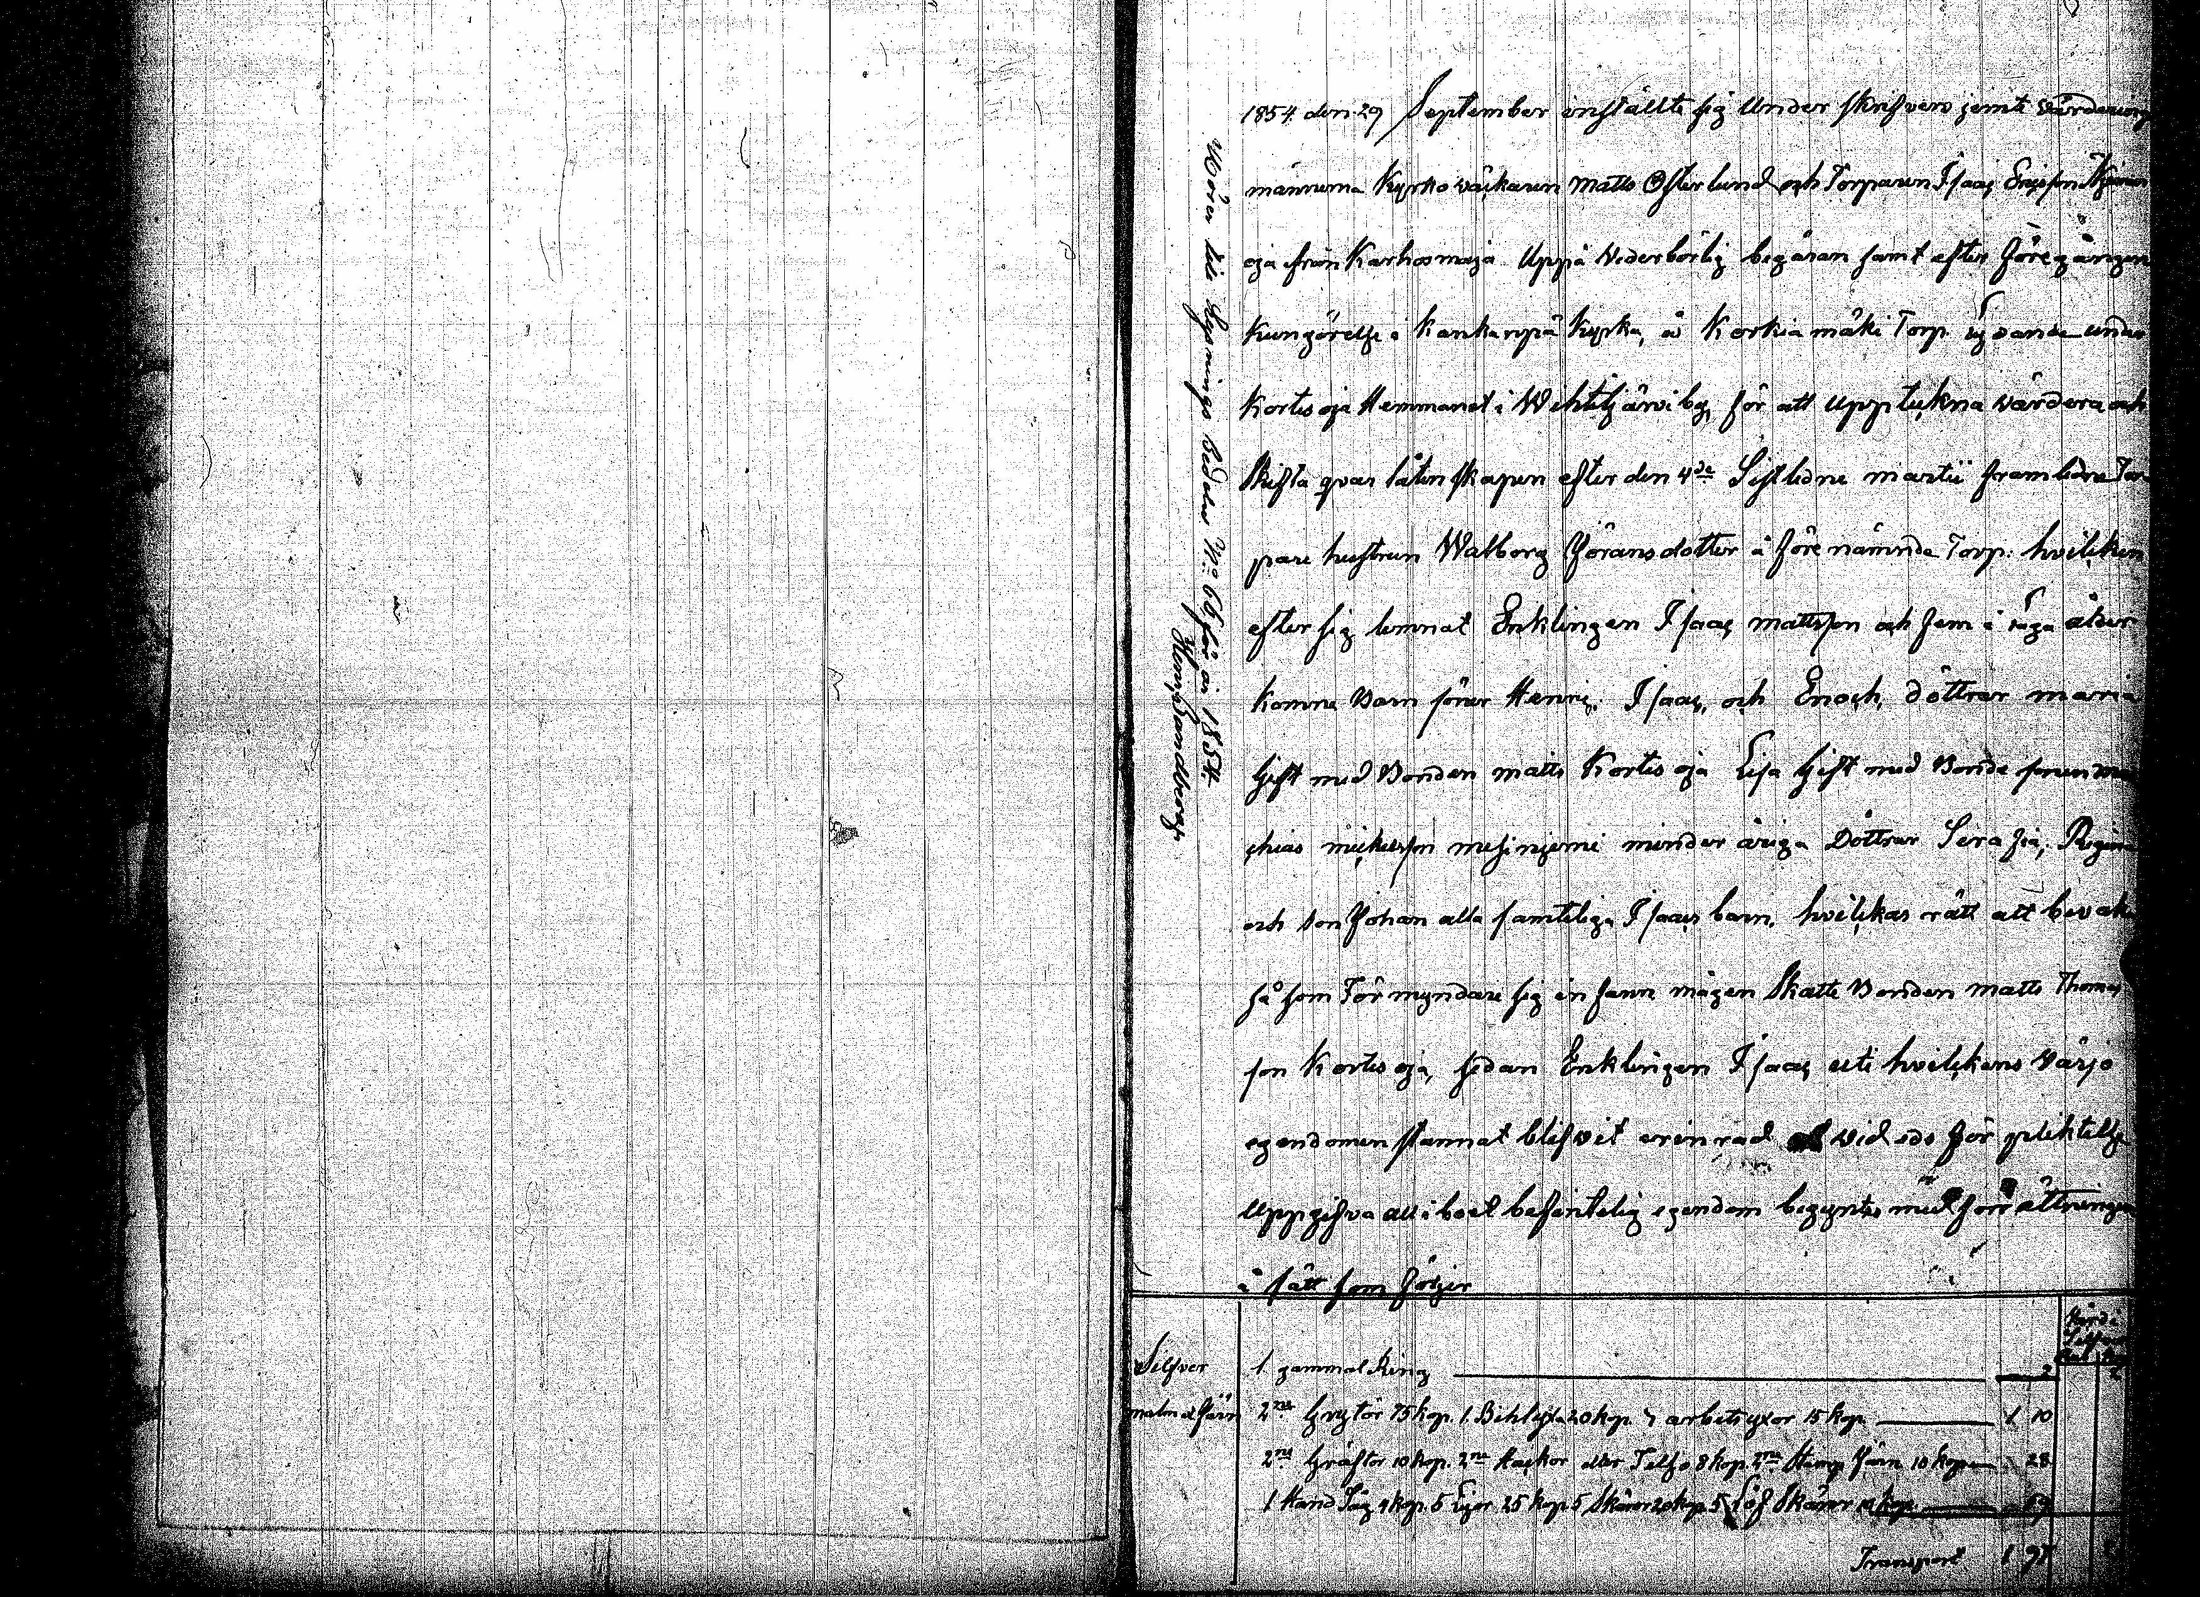 1854 den 29 September inställte sig Under skrifven jemte värderings
männerna Kyrkoväcktaren Matts Österlund och Torparen Isaac Ericsson
oja från Karhosmaja Uppå Vederbörlig begäran samt efter Föregången
Kungörelse i Kankarpä Kyrka, å Korkiamäki Torp lydande under
Kortesoja Hemmanet i Wihteljärvi by, för att Upptekna värdera och
Skifta qvarlåtenskapen efter den 4de Sistledne martii framledne Tor-
pare hustrun Walborg Jöransdotter å Förenämnde Torp. hvilcken
efter sig lemnat Enklingen Isaac mattsson och Fem i laga ålder
Komne Barn söner Henric, Isaac, och Enoch, döttrar maria
Gift med Bonden matts Kortesoja Lisa Gift med Bonde sonen Ma
chias mickelsson minder åriga Döttrar Serafia, Regina
och son Johan alla samteliga Isaacs barn, hvilckas rätt att bevaka
såsom Förmyndare sig in fann mågen Skatte Bonden matts Thomas
son Kortesoja, sedan Enklingen Isaac uti hvilckens värjo
egendomen stannat blifvit erinrad vid eds förplicktelse
Uppgifva all i boet befintelig egendom begyntes med förrättningen
å sätt som Följer
Hörer till Lysnings Sedelen No 66 för år 1854.
Henr. Sandberg
Värde i
Silfver
Silfver 1 gammal Ring 2
malm & Järn 2ne Grytor 75 kop. 1 Bihlyxa 20 kop. 3 arbetsyxor 15 kop 1 10
2ne Gräftor 10 kop. 2ne Hackor eller Telso 8 kop. 2ne Hamp Järn 10 kop 28
1 Hand Såg 4 kop. 5 Lijor 25 kop 5 Skäror 20 kop 5 Löf Skäror kop 59
Transport 1 97